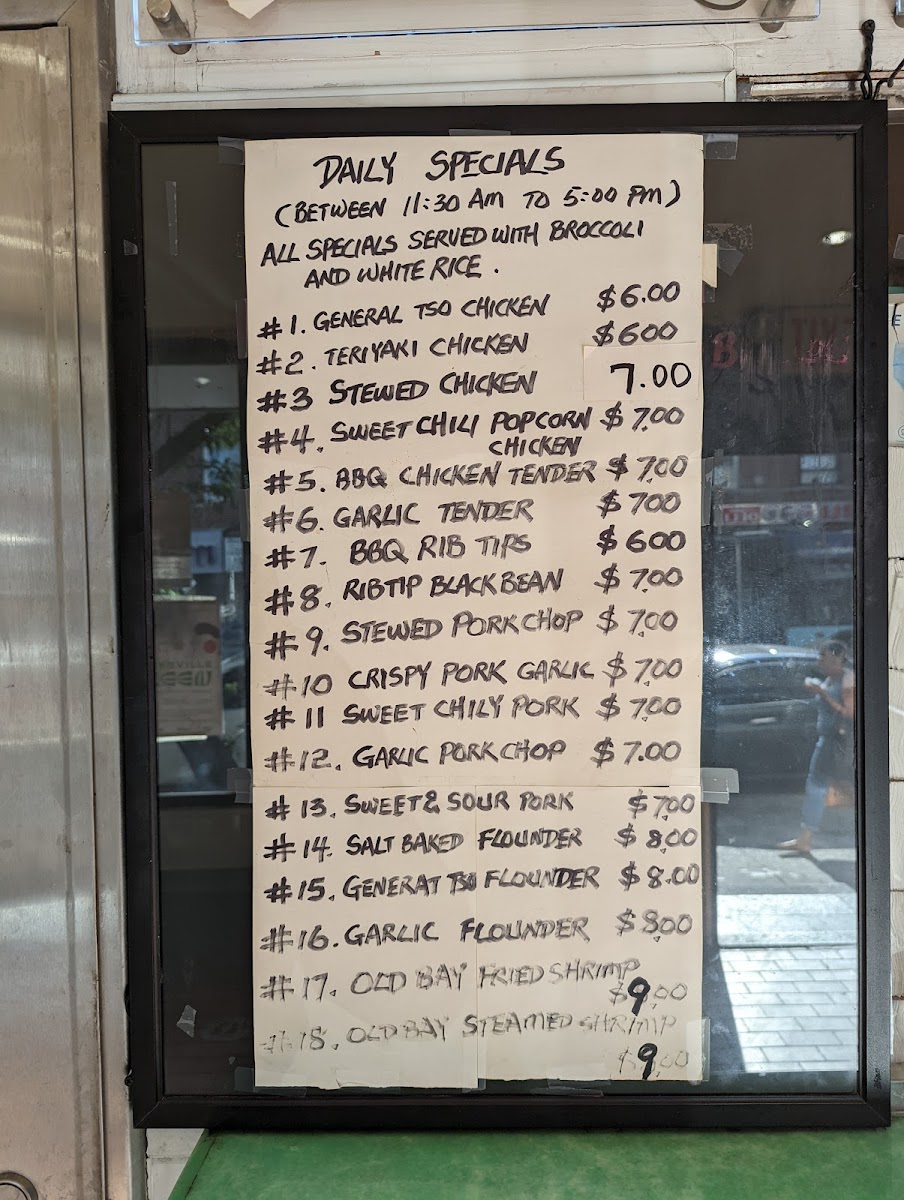 DAILY SPECIALS
(BETWEEN 11:30 AM TO 5:00 PM)
ALL SPECIALS SERVED WITH BROCCOLI
AND WHITE RICE.
#1. GENERAL TSO CHICKEN $6.00
#2. TERIYAKI CHICKEN $600
#3 STEWED CHICKEN 7.00
#4. SWEET CHILI POPCORN $7.00
CHICKEN
#5. BBQ CHICKEN TENDER $7.00
#6. GARLIC TENDER $700
#7. BBQ RIB TIPS $600
#8. RIBTIP BLACK BEAN $7.00
#9. STEWED PORK CHOP $7.00
#10 CRISPY PORK GARLIC $7.00
#11 SWEET CHILY PORK $7.00
#12. GARLIC PORK CHOP $7.00
#13. SWEET & SOUR PORK $7.00
#14. SALT BAKED FLOUNDER $8.00
#15. GENERAT TSO FLOUNDER $8.00
#16. GARLIC FLOUNDER $8.00
#17. OLD BAY FRIED SHRIMP
$9.00
#18. OLD BAY STEAMED SHRIMP
$9.00